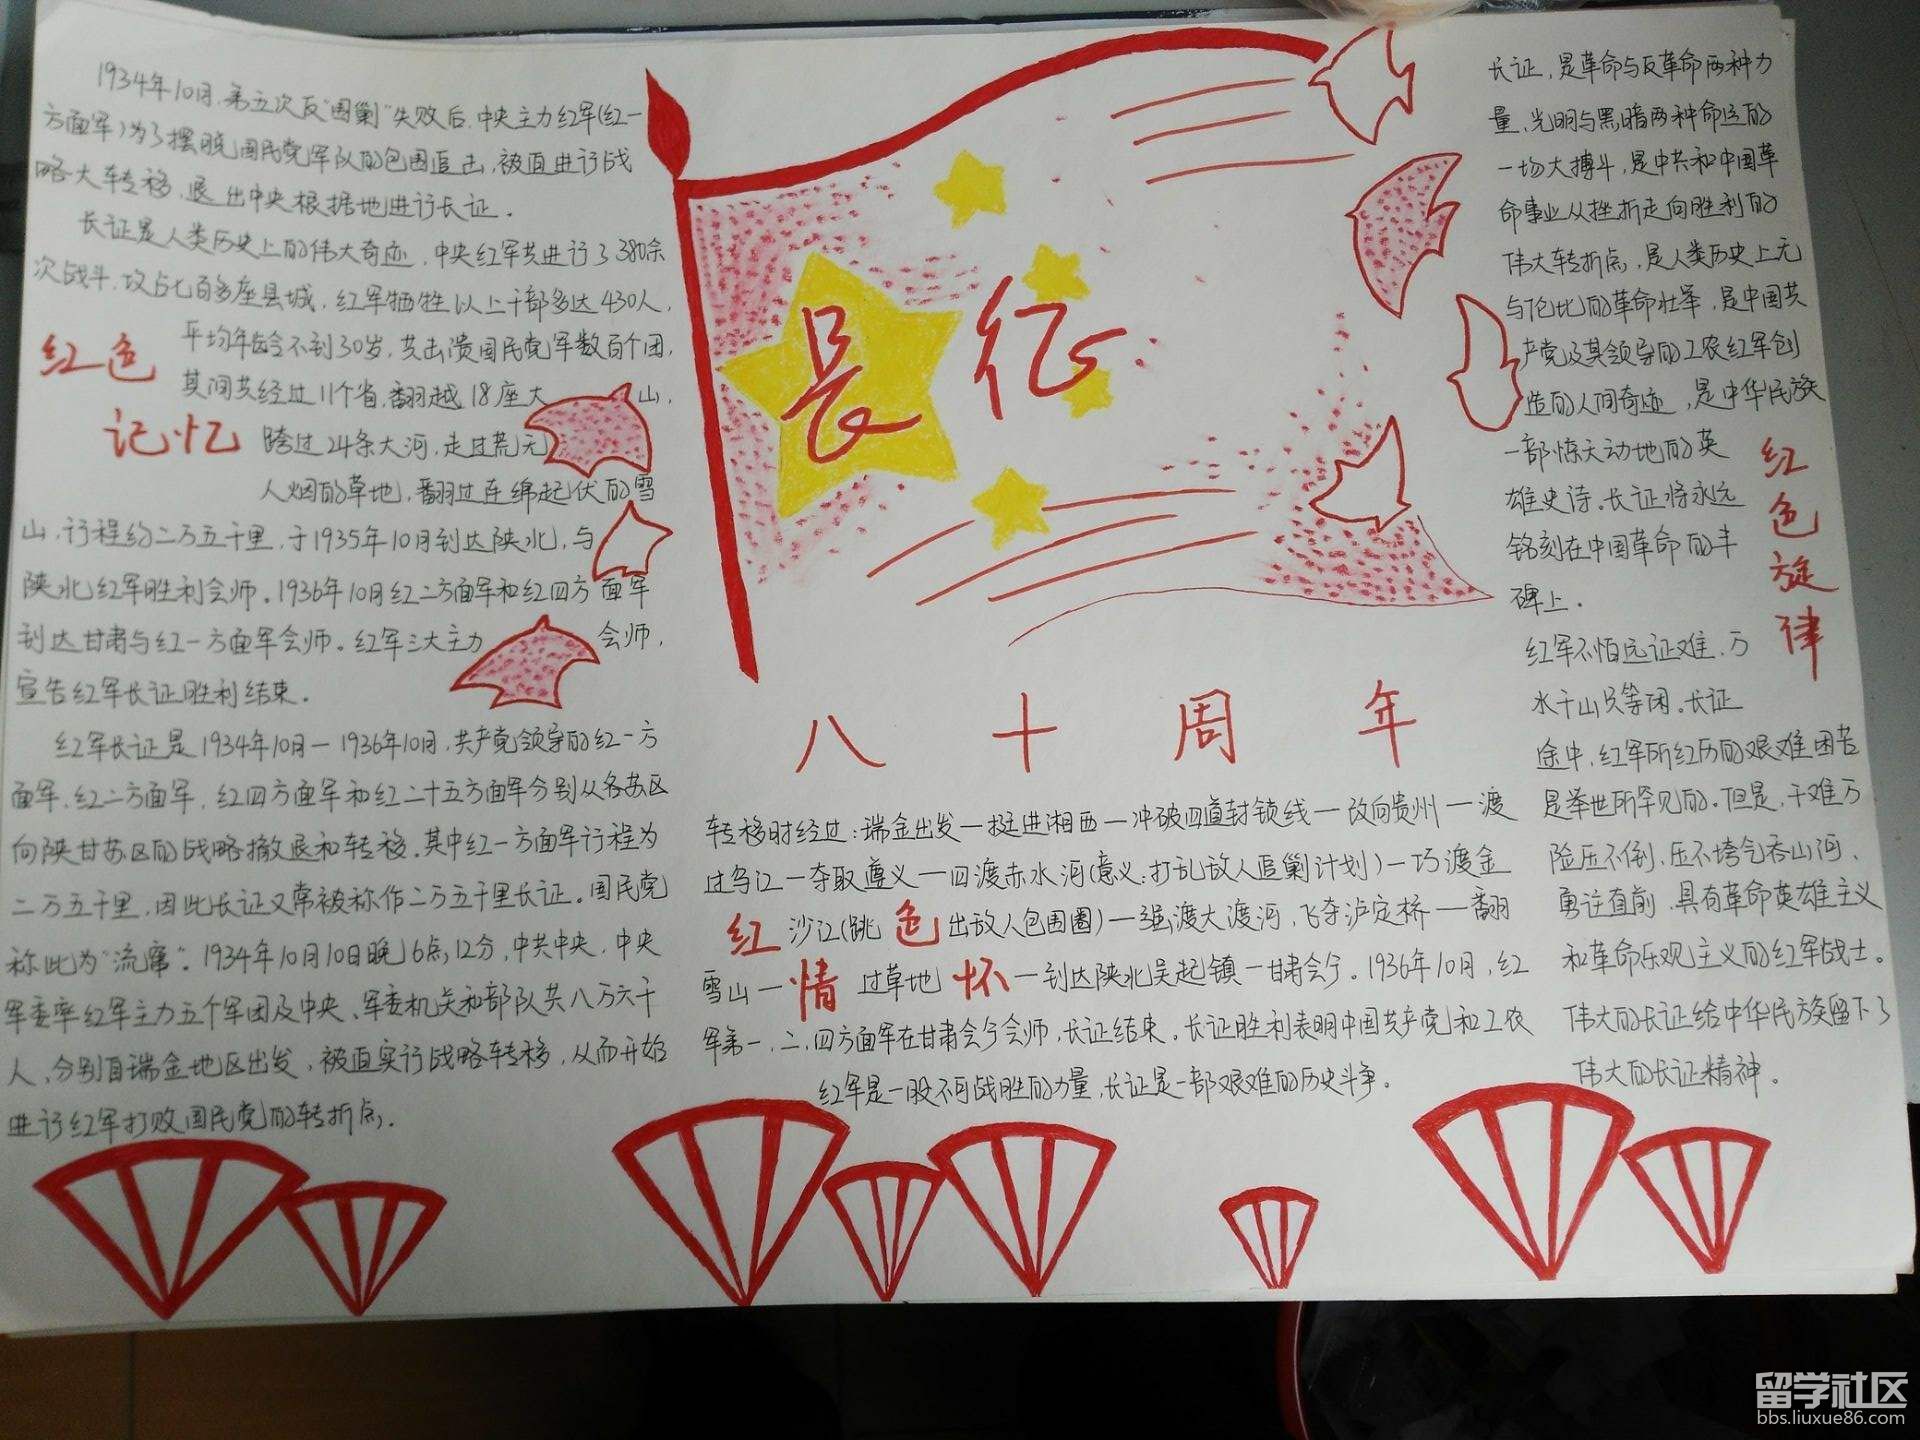 1934年10月,第五次反"围剿"失败后,中央主力红军(红一
方面军)为了摆脱国民党军队的包围追击,被迫进行战
略大转移,退出中央根据地进行长征.
长征是人类历史上的伟大奇迹,中央红军共进行了380余
次战斗,攻占七百多座县城,红军牺牲以上干部多达430人,
平均年龄不到30岁,共击溃国民党军数百个团,
其间共经过11个省,翻越18座大山,
红色
记忆
跨过24条大河,走过荒无
人烟的草地,翻过连绵起伏的雪
山,行程约二万五千里,于1935年10月到达陕北,与
陕北红军胜利会师。1936年10月红二方面军和红四方面军
到达甘肃与红一方面军会师。红军三大主力会师,
宣告红军长征胜利结束.
红军长征是1934年10月—1936年10月,共产党领导的红一方
面军,红二方面军,红四方面军和红二十五方面军分别从各苏区
向陕甘苏区的战略撤退和转移.其中红一方面军行程为
二万五千里,因此长征又常被称作二万五千里长征。国民党
称此为"流窜"。1934年10月10日晚6点12分,中共中央,中央
军委率红军主力五个军团及中央、军委机关和部队共八万六千
人,分别自瑞金地区出发,被迫实行战略转移,从而开始
进行红军打败国民党的转折点.
长征
八十周年
转移时经过:瑞金出发—挺进湘西—冲破四道封锁线—改向贵州—渡
过乌江—夺取遵义—四渡赤水河(意义:打乱敌人追剿计划)—巧渡金
沙江(跳出敌人包围圈)—强渡大渡河,飞夺泸定桥—翻
雪山—过草地—到达陕北吴起镇—甘肃会宁。1936年10月,红
军第一,二,四方面军在甘肃会宁会师,长征结束。长征胜利表明中国共产党和工农
红军是一股不可战胜的力量,长征是一部艰难的历史斗争.
红色
情怀
长征,是革命与反革命两种力
量,光明与黑暗两种命运的
一场大搏斗,是中共和中国革
命事业从挫折走向胜利的
伟大转折点,是人类历史上无
与伦比的革命壮举,是中国共
产党及其领导的工农红军创
造的人间奇迹,是中华民族
一部惊天动地的英
雄史诗.长征将永远
铭刻在中国革命的丰
碑上.
红色旋律
红军不怕远征难,万
水千山只等闲。长征
途中,红军所红历的艰难困苦
是举世所罕见的。但是,千难万
险压不倒,压不垮气吞山河、
勇往直前,具有革命英雄主义
和革命乐观主义的红军战士。
伟大的长征给中华民族留下了
伟大的长征精神.
留学社区
bbs.liuxue86.com